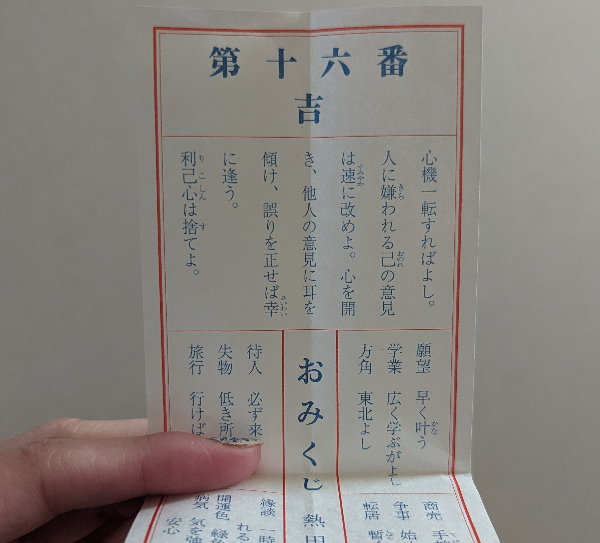 第十六番
吉
心機一転すればよし。
人に嫌われる己の意見
は速に改めよ。心を開
き、他人の意見に耳を
傾け、誤りを正せば幸
に逢う。
利己心は捨てよ。
願望 早く叶う
学業 広く学ぶがよし
方角 東北よし
おみくじ 熱田
待人 必ず来
失物 低き所
旅行 行けば
商売
争事 始
転居 暫
縁談 一時
れる
開運色 緑
病気 気を強
安心